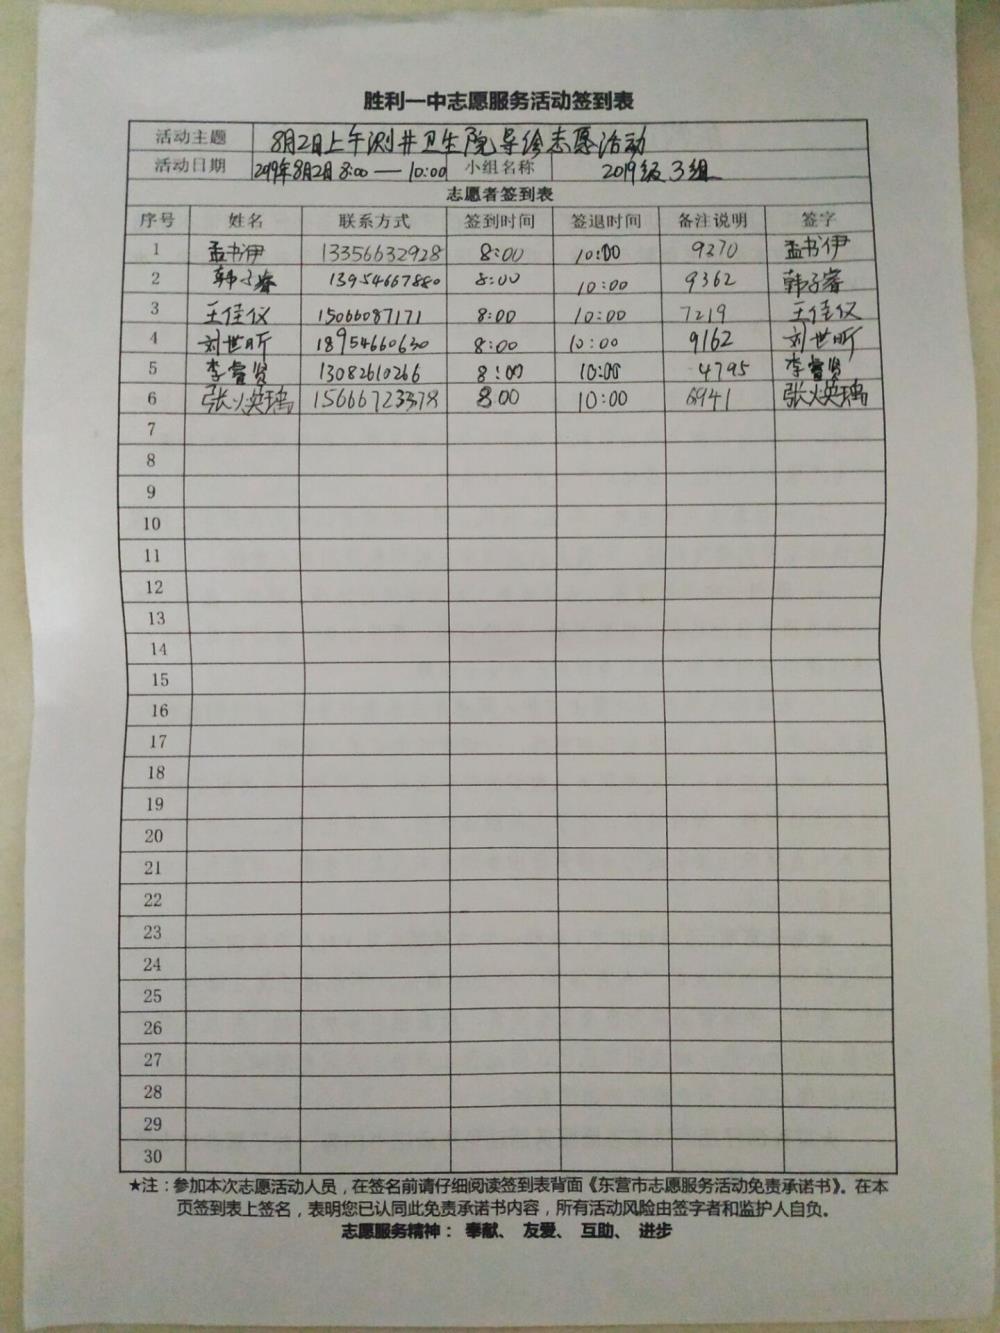 胜利一中志愿服务活动签到表
活动主题 8月2日上午测井卫生院导诊志愿活动
活动日期 2019年8月2日 8:00 — 10:00 小组名称 2019级3组
志愿者签到表
序号 姓名 联系方式 签到时间 签退时间 备注说明 签字
1 孟书伊 13356632928 8:00 10:00 9270 孟书伊
2 韩子睿 13954667880 8:00 10:00 9362 韩子睿
3 王佳仪 15066087171 8:00 10:00 7219 王佳仪
4 刘世昕 18954660630 8:00 10:00 9162 刘世昕
5 李睿贤 13082610266 8:00 10:00 4795 李睿贤
6 张焕瑀 15666723378 8:00 10:00 6941 张焕瑀
7
8
9
10
11
12
13
14
15
16
17
18
19
20
21
22
23
24
25
26
27
28
29
30
★注：参加本次志愿活动人员，在签名前请仔细阅读签到表背面《东营市志愿服务活动免责承诺书》。在本
页签到表上签名，表明您已认同此免责承诺书内容，所有活动风险由签字者和监护人自负。
志愿服务精神： 奉献、 友爱、 互助、 进步